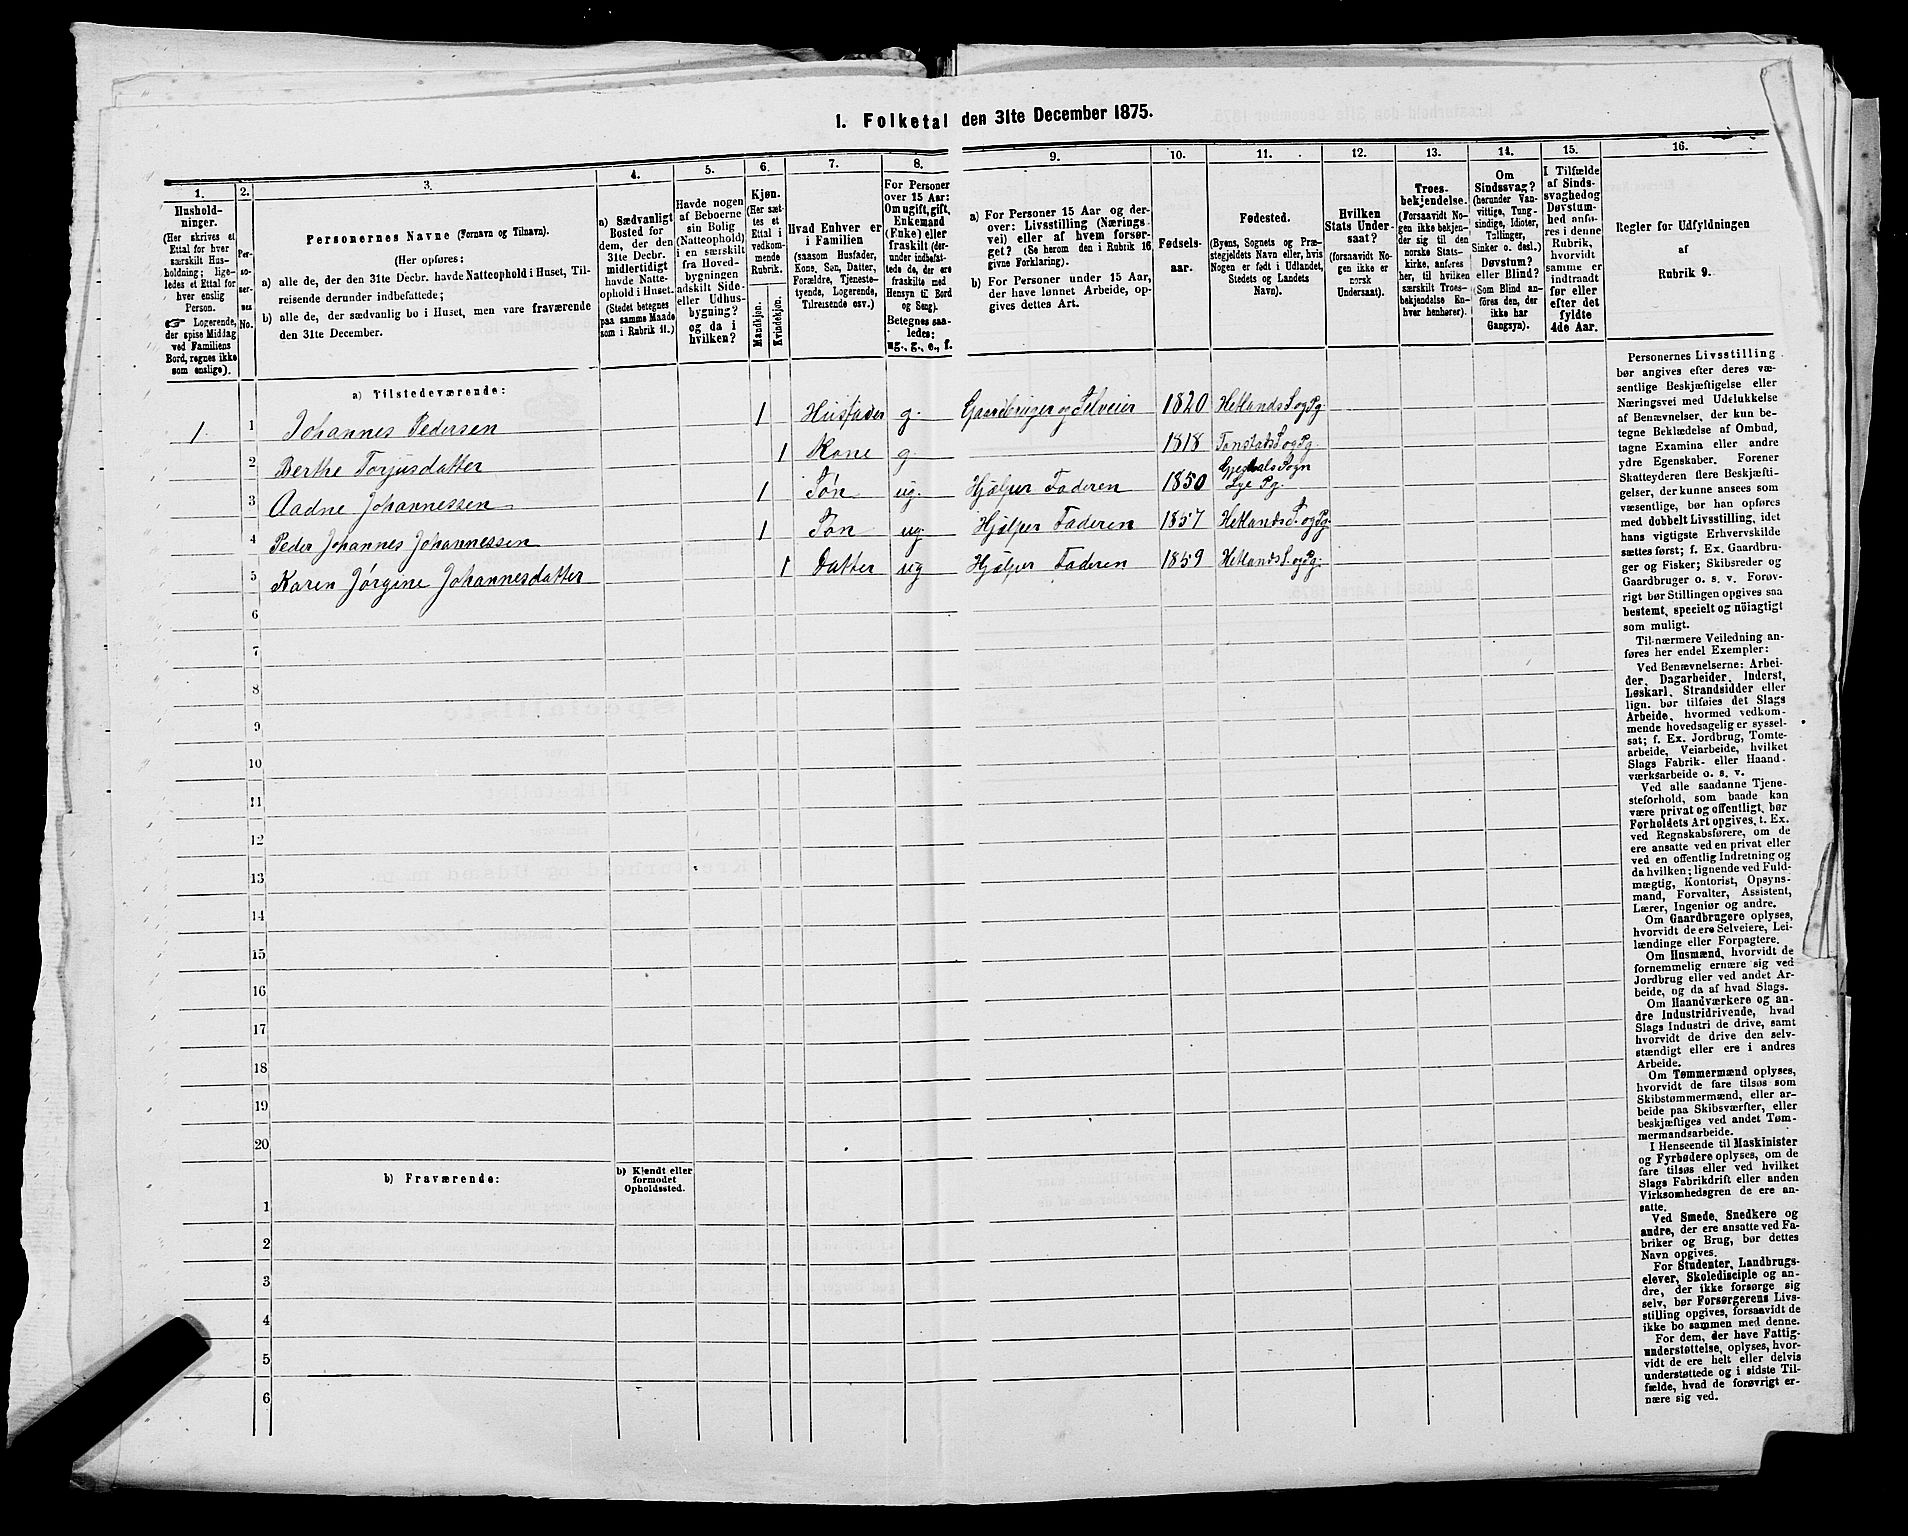 1. Folketal den 31te December 1875.
1.
Hushold-
ninger.
(Her skrives et
Ettal for hver
særskilt Hus-
holdning; lige-
ledes et Ettal for
hver enslig
Person.
☞ Logerende,
der spise Middag
ved Familiens
Bord, regnes ikke
som enslige).
2.
Per-
so-
ner-
nes
No.
3.
Personernes Navne (Fornavn og Tilnavn).
(Her opføres:
a) alle de, der den 31te Decbr. havde Natteophold i Huset, Til-
reisende derunder indbefattede;
b) alle de, der sædvanlig bo i Huset, men vare fraværende
den 31te December.
4.
a) Sædvanligt
Bosted for
dem, der den
31te Decbr.
midlertidigt
havde Natte-
ophold i Huset.
(Stedet betegnes
paa samme Maade
som i Rubrik 11.)
5.
Havde nogen
af Beboerne
sin Bolig
(Natteophold)
i en særskilt
fra Hoved-
bygningen
adskilt Side-
eller Udhus-
bygning?
og da i
hvilken?
6.
Kjøn.
(Her sæt-
tes et
Ettal i
vedkom-
mende
Rubrik.
Mandkjøn.
Kvindekjøn.
7.
Hvad Enhver er
i Familien
(saasom Husfader,
Kone, Søn, Datter,
Forældre, Tjeneste-
tyende, Logerende,
Tilreisende osv.)
8.
For Personer
over 15 Aar:
Om ugift, gift,
Enkemand
(Enke) eller
fraskilt (der-
under indbefat-
tede de, der ere
fraskilte med
Hensyn til Bord
og Seng).
Betegnes saa-
ledes:
ug., g., e., f.
9.
a) For Personer 15 Aar og der-
over: Livsstilling (Nærings-
vei) eller af hvem forsør-
get? (Se herom den i Rubrik 16
givne Forklaring).
b) For Personer under 15 Aar,
der have lønnet Arbeide, op-
gives dettes Art.
10.
Fødsels-
aar.
11.
Fødested.
(Byens, Sognets og Præ-
stegjeldets Navn eller, hvis
Nogen er født i Udlandet,
Stedets og Landets
Navn).
12.
Hvilken
Stats Under-
saat?
(forsaavidt No-
gen ikke er
norsk
Undersaat).
13.
Troes-
bekjendelse.
(Forsaavidt No-
gen ikke bekjen-
der sig til den
norske Stats-
kirke, anføres
her, til hvilken
særskilt Troes-
bekjendelse En-
hver henhører).
14.
Om
Sindssvag?
(herunder Van-
vittige, Tung-
sindige, Idioter,
Tullinger,
Sinker o. desl.)
Døvstum?
eller Blind?
(Som Blind an-
føres den, der
ikke har
Gangsyn).
15.
I Tilfælde
af Sinds-
svaghed og
Døvstum-
hed anfø-
res i denne
Rubrik,
hvorvidt
samme er
indtraadt
før eller
efter det
fyldte
4de Aar.
16.
Regler for Udfyldningen
af
Rubrik 9.
a) Tilstedeværende:
1 1 Johannes Pedersen 1 Husfader g. Gaardbruger og Selveier 1820 Hetlands S. og Pg.
2 Berthe Torjusdatter 1 Kone g. 1818 Tonstads S. og Pg.
3 Aadne Johannessen 1 Søn ug. Hjælper Faderen 1850 Gjesdals Sogn
Lye Pg.
4 Peder Johannes Johannessen 1 Søn ug Hjælper Faderen 1857 Hetlands S. og Pg.
5 Karen Jørgine Johannesdatter 1 Datter ug Hjælper Faderen 1859 Hetlands S. og Pg.
6
7
8
9
10
11
12
13
14
15
16
17
18
19
20
b) Fraværende:
b) Kjendt eller
formodet
Opholdssted.
1
2
3
4
5
6
Personernes Livsstilling
bør angives efter deres væ-
sentlige Beskjæftigelse eller
Næringsvei med Udelukkelse
af Benævnelser, der kun be-
tegne Beklædelse af Ombud,
tagne Examina eller andre
ydre Egenskaber. Forener
Skatteyderen flere Beskjæfti-
gelser, der kunne ansees som
væsentlige, bør han opføres
med dobbelt Livsstilling, idet
hans vigtigste Erhvervskilde
sættes først; f. Ex. Gaardbru-
ger og Fisker; Skibsreder og
Gaardbruger o. s. v. Forøv-
rigt bør Stillingen opgives saa
bestemt, specielt og nöiagtigt
som muligt.
Til nærmere Veiledning an-
føres her endel Exempler:
Ved Benævnelserne: Arbei-
der, Dagarbeider, Inderst,
Løskarl, Strandsidder eller
lign. bør tilføies det Slags
Arbeide, hvormed vedkom-
mende hovedsagelig er syssel-
sat; f. Ex. Jordbrug, Tomte-
arbeide, Veiarbeide, hvilket
Slags Fabrik- eller Haand-
værksarbeide o. s. v.
Ved alle saadanne Tjene-
steforhold, som baade kan
være privat og offentligt, bør
Forholdets Art opgives, t. Ex.
ved Regnskabsførere, om de
ere ansatte ved en privat eller
ved en offentlig Indretning og
da hvilken; lignende ved Fuld-
mægtig, Kontorist, Opsyns-
mand, Forvalter, Assistent,
Lærer, Ingeniør og andre.
Om Gaardbrugere oplyses,
hvorvidt de ere Selveiere, Lei-
lændinge eller Forpagtere.
Om Husmænd, hvorvidt de
fornemmelig ernære sig ved
Jordbrug eller ved andet Ar-
beide, og da af hvad Slags.
Om Haandværkere og an-
dre Industridrivende, hvad
Slags Industri de drive, samt
hvorvidt de drive den selv-
stændigt eller ere i andres
Arbeide.
Om Tømmermænd oplyses,
hvorvidt de fare tilsøs som
Skibstømmermænd, eller ar-
beide paa Skibsværfter, eller
beskjæftiges ved andet Tøm-
mermandsarbeide.
I Henseende til Maskinister
og Fyrbødere oplyses, om de
fare tilsøs eller ved hvilket
Slags Fabrikdrift eller anden
Virksomhedsgren de ere an-
satte.
Ved Smede, Snedkere og
andre, der ere ansatte ved Fa-
briker og Brug, bør dettes
Navn opgives.
For Studenter, Landbrugs-
elever, Skoledisciple og an-
dre, der ikke forsørge sig
selv, bør Forsørgerens Livs-
stilling opgives, forsaavidt de
ikke bo sammen med denne.
For dem, der have Fattig-
understøttelse, oplyses, hvor-
vidt de ere helt eller delvis
understøttede og i sidste Til-
fælde, hvad de forøvrigt er-
nære sig ved.